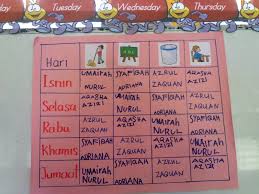 Tuesday Wednesday Thursday
Hari
Isnin UMAIRAH NURUL SYAFIQAH ADRIANA AZRUL ZAQUAN AQASHA AZIZI
Selasa AQASHA AZIZI UMAIRAH NURUL SYAFIQAH ADRIANA AZRUL ZAQUAN
Rabu AZRUL ZAQUAN AQASHA AZIZI UMAIRAH NURUL SYAFIQAH ADRIANA
Khamis SYAFIQAH ADRIANA AZRUL ZAQUAN AQASHA AZIZI UMAIRAH NURUL
Jumaat UMAIRAH NURUL SYAFIQAH ADRIANA AZRUL ZAQUAN AQASHA AZIZI